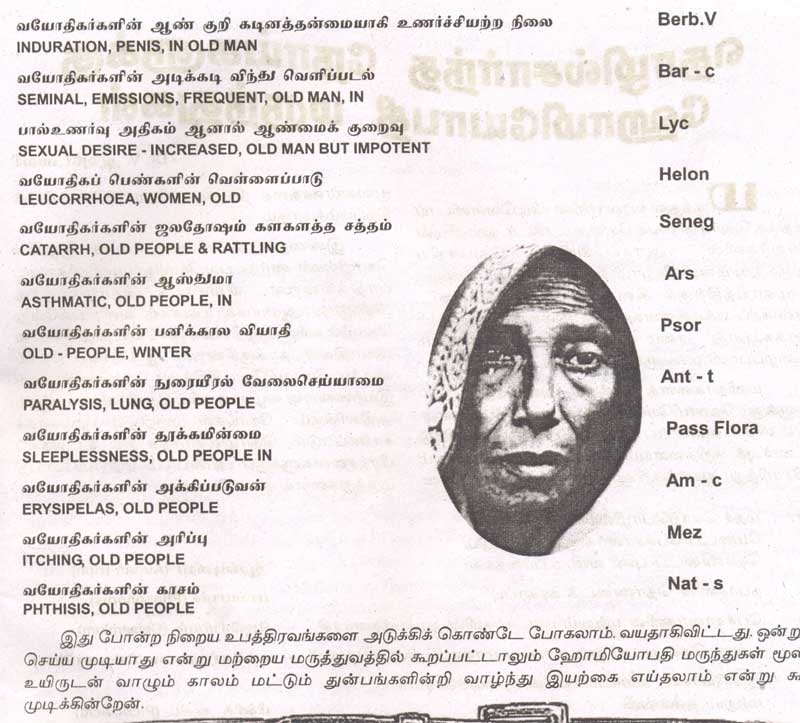 வயோதிகர்களின் ஆண் குறி கடினத்தன்மையாகி உணர்ச்சியற்ற நிலை Berb.V
INDURATION, PENIS, IN OLD MAN
வயோதிகர்களின் அடிக்கடி விந்து வெளிப்படல் Bar - c
SEMINAL, EMISSIONS, FREQUENT, OLD MAN, IN
பால்உணர்வு அதிகம் ஆனால் ஆண்மைக் குறைவு Lyc
SEXUAL DESIRE - INCREASED, OLD MAN BUT IMPOTENT
வயோதிகப் பெண்களின் வெள்ளைப்பாடு Helon
LEUCORRHOEA, WOMEN, OLD
வயோதிகர்களின் ஜலதோஷம் களகளத்த சத்தம் Seneg
CATARRH, OLD PEOPLE & RATTLING
வயோதிகர்களின் ஆஸ்துமா Ars
ASTHMATIC, OLD PEOPLE, IN
வயோதிகர்களின் பனிக்கால வியாதி Psor
OLD - PEOPLE, WINTER
வயோதிகர்களின் நுரையீரல் வேலைசெய்யாமை Ant - t
PARALYSIS, LUNG, OLD PEOPLE
வயோதிகர்களின் தூக்கமின்மை Pass Flora
SLEEPLESSNESS, OLD PEOPLE IN
வயோதிகர்களின் அக்கிப்படுவன் Am - c
ERYSIPELAS, OLD PEOPLE
வயோதிகர்களின் அரிப்பு Mez
ITCHING, OLD PEOPLE
வயோதிகர்களின் காசம் Nat - s
PHTHISIS, OLD PEOPLE
இது போன்ற நிறைய உபத்திரவங்களை அடுக்கிக் கொண்டே போகலாம். வயதாகிவிட்டது. ஒன்று
செய்ய முடியாது என்று மற்றைய மருத்துவத்தில் கூறப்பட்டாலும் ஹோமியோபதி மருந்துகள் மூல
உயிருடன் வாழும் காலம் மட்டும் துன்பங்களின்றி வாழ்ந்து இயற்கை எய்தலாம் என்று கூ
முடிக்கின்றேன்.